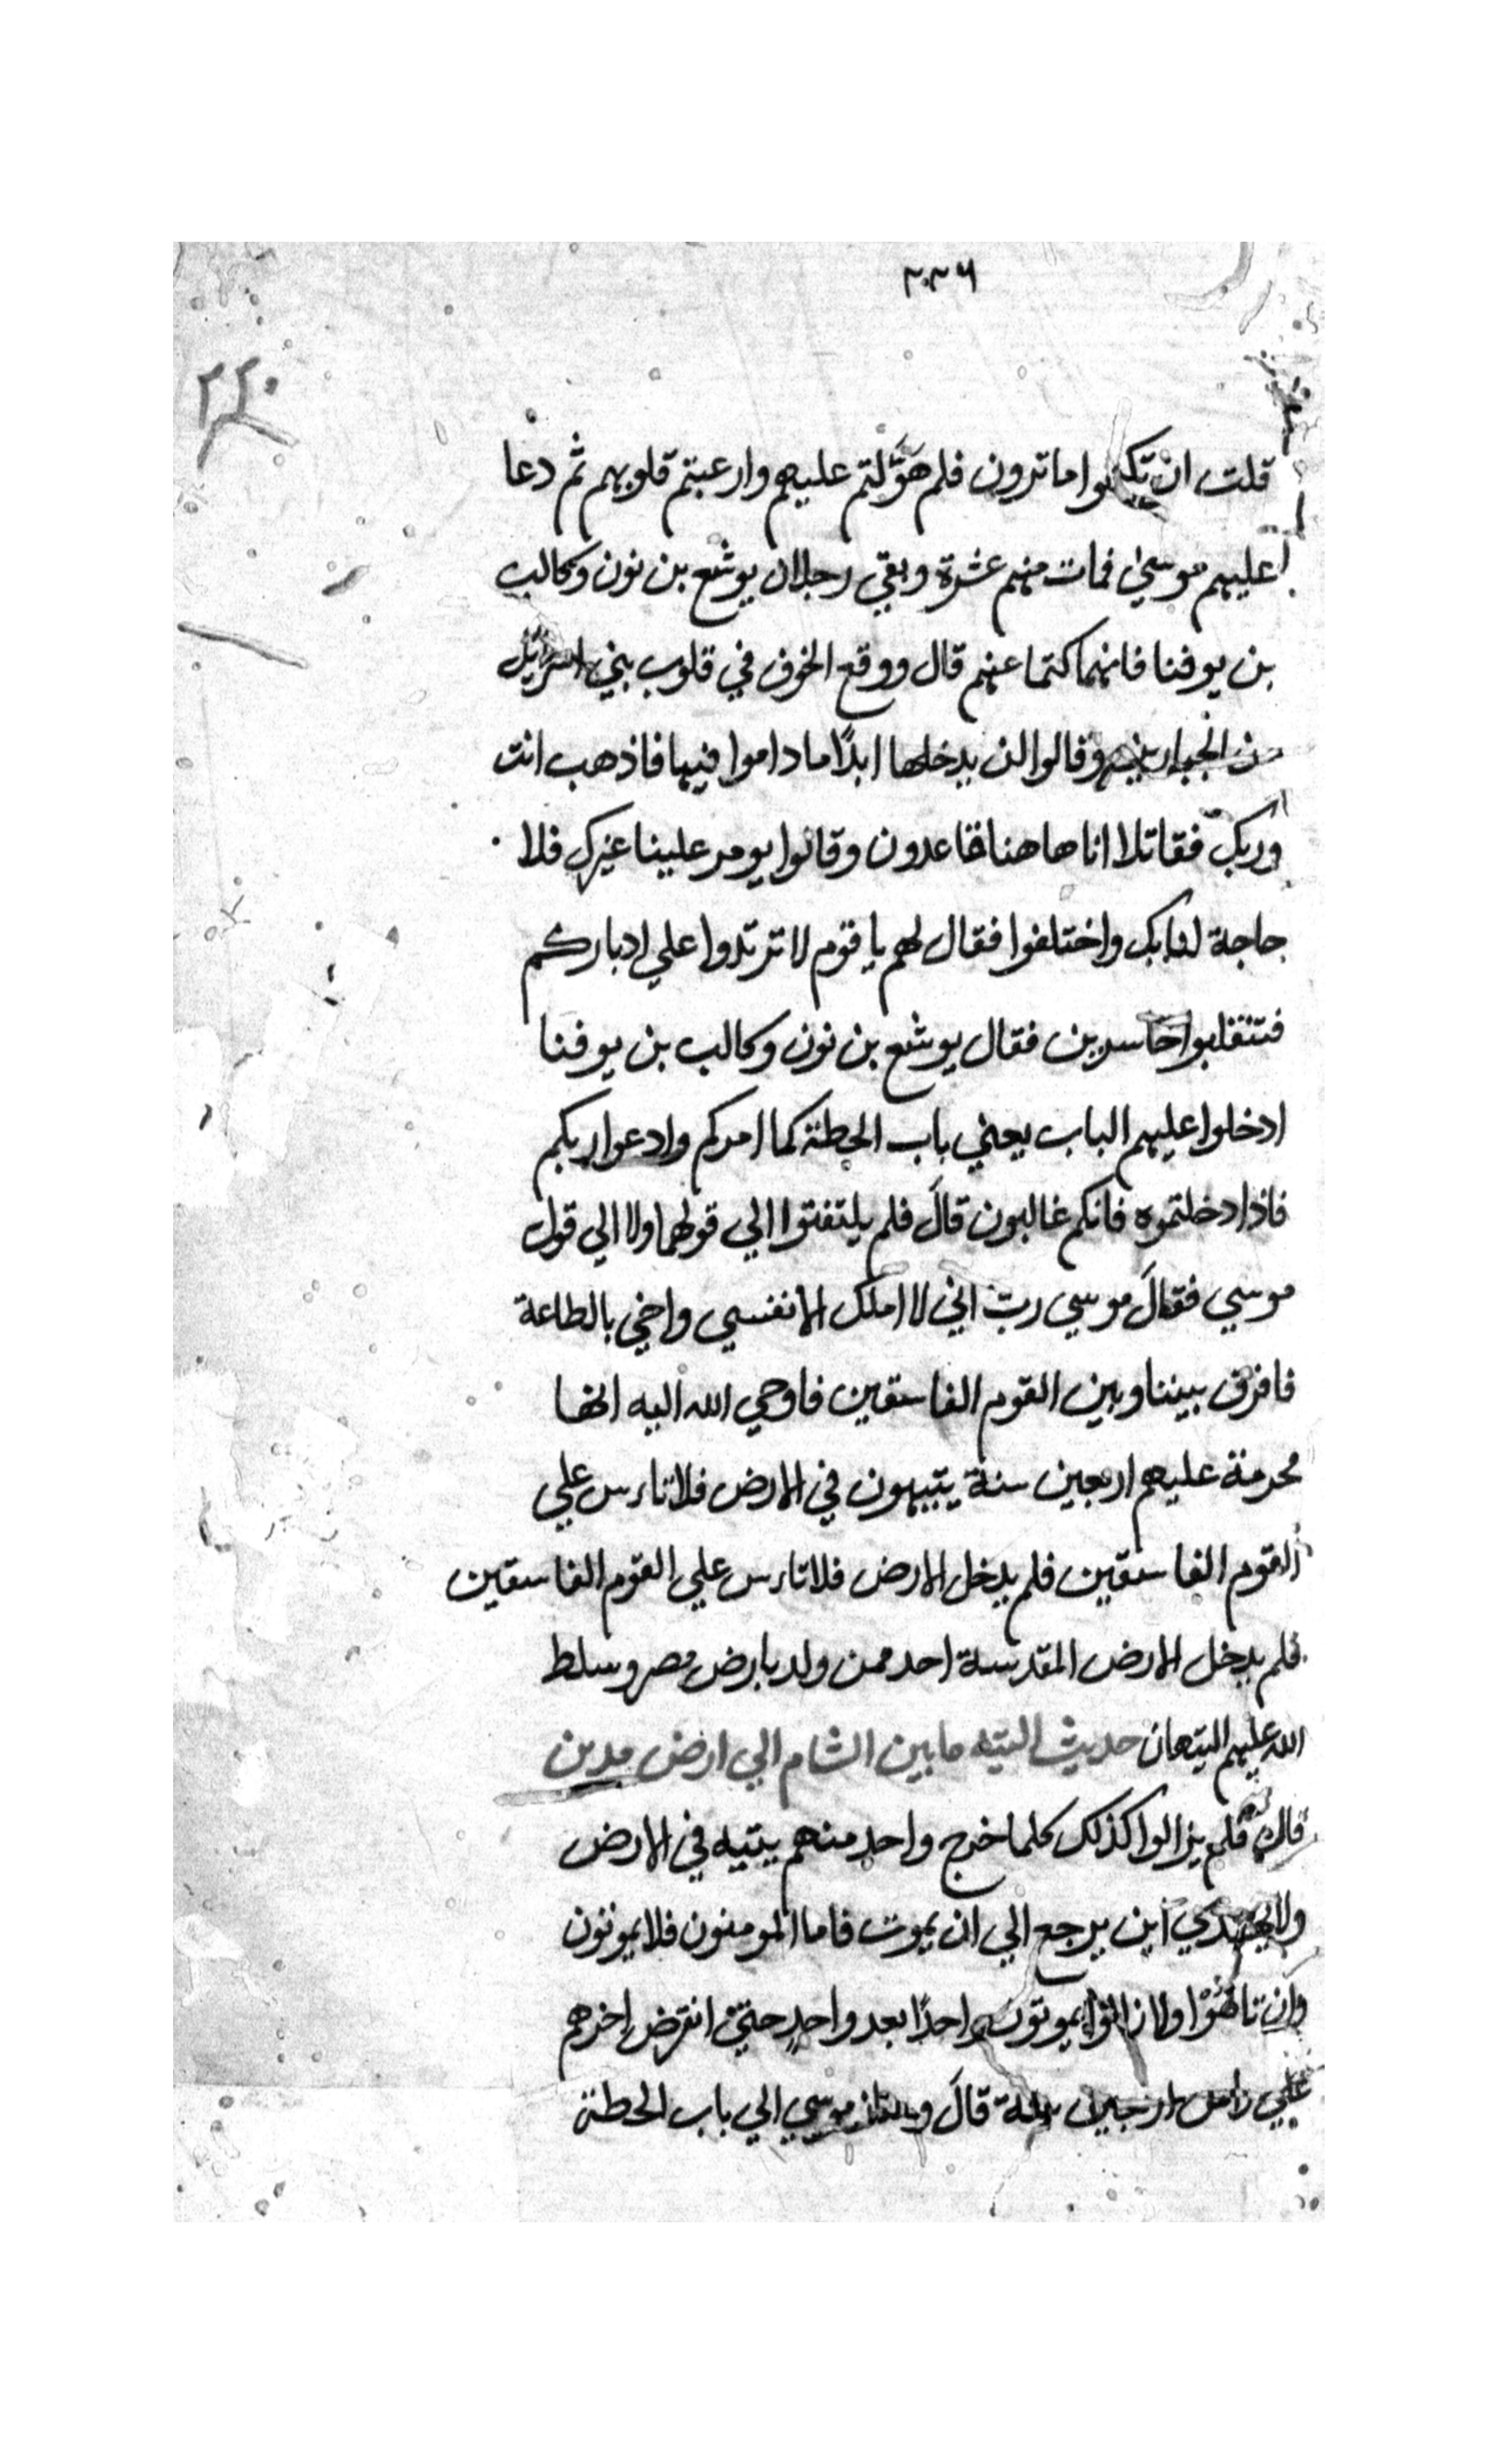 ٣٠٣٦
٢٢٠
قلت ان تكتموا ما ترون فلم هَوَّلتم عليهم وارعبتم قلوبهم ثم دعا
عليهم موسي فمات منهم عشرة وبقي رجلان يوشع بن نون وكالب
بن يوفنا فانهما كتما عنهم قال ووقع الخوف في قلوب بني اسرائل
من الجبارين وقالوا لن يدخلها ابدًا ما داموا فيها فاذهب انت
وربك فقاتلا انا هاهنا قاعدون وقالوا يومر علينا غيرك فلا
حاجة لنا بك واختلفوا فقال لهم يا قوم لا ترتدوا علي ادباركم
فتنقلبوا خاسرين فقال يوشع بن نون وكالب بن يوفنا
ادخلوا عليهم الباب يعني باب الحطة كما امركم وادعوا ربكم
فاذا دخلتموه فانكم غالبون قالَ فلم يلتفتوا الي قولهما ولا الي قول
موسي فقالَ موسي ربّ اني لا املك الا نفسي واخي بالطاعة
فافرق بيننا وبين القوم الفاسقين فاوحي الله اليه انها
محرمة عليهم اربعين سنة يتيهون في الارض فلا تاس علي
القوم الفاسقين فلم يدخل الارض فلا تاس علي القوم الفاسقين
فلم يدخل الارض المقدسة احد ممن ولد بارض مصر وسلط
الله عليهم التيهان حديث التيه ما بين الشام الي ارض مدين
قال فلم يزالوا كذلك كلما خرج واحد منهم يتيه في الارض
ولا يهتدي اين يرجع الي ان يموت فاما المومنون فلا يموتون
وان تاهُوْا ولا زالوا يموتون واحدًا بعد واحدٍ حتيْ انقرض اخرهم
علي راس اربعين سنة قالَ موسي الي باب الحطة